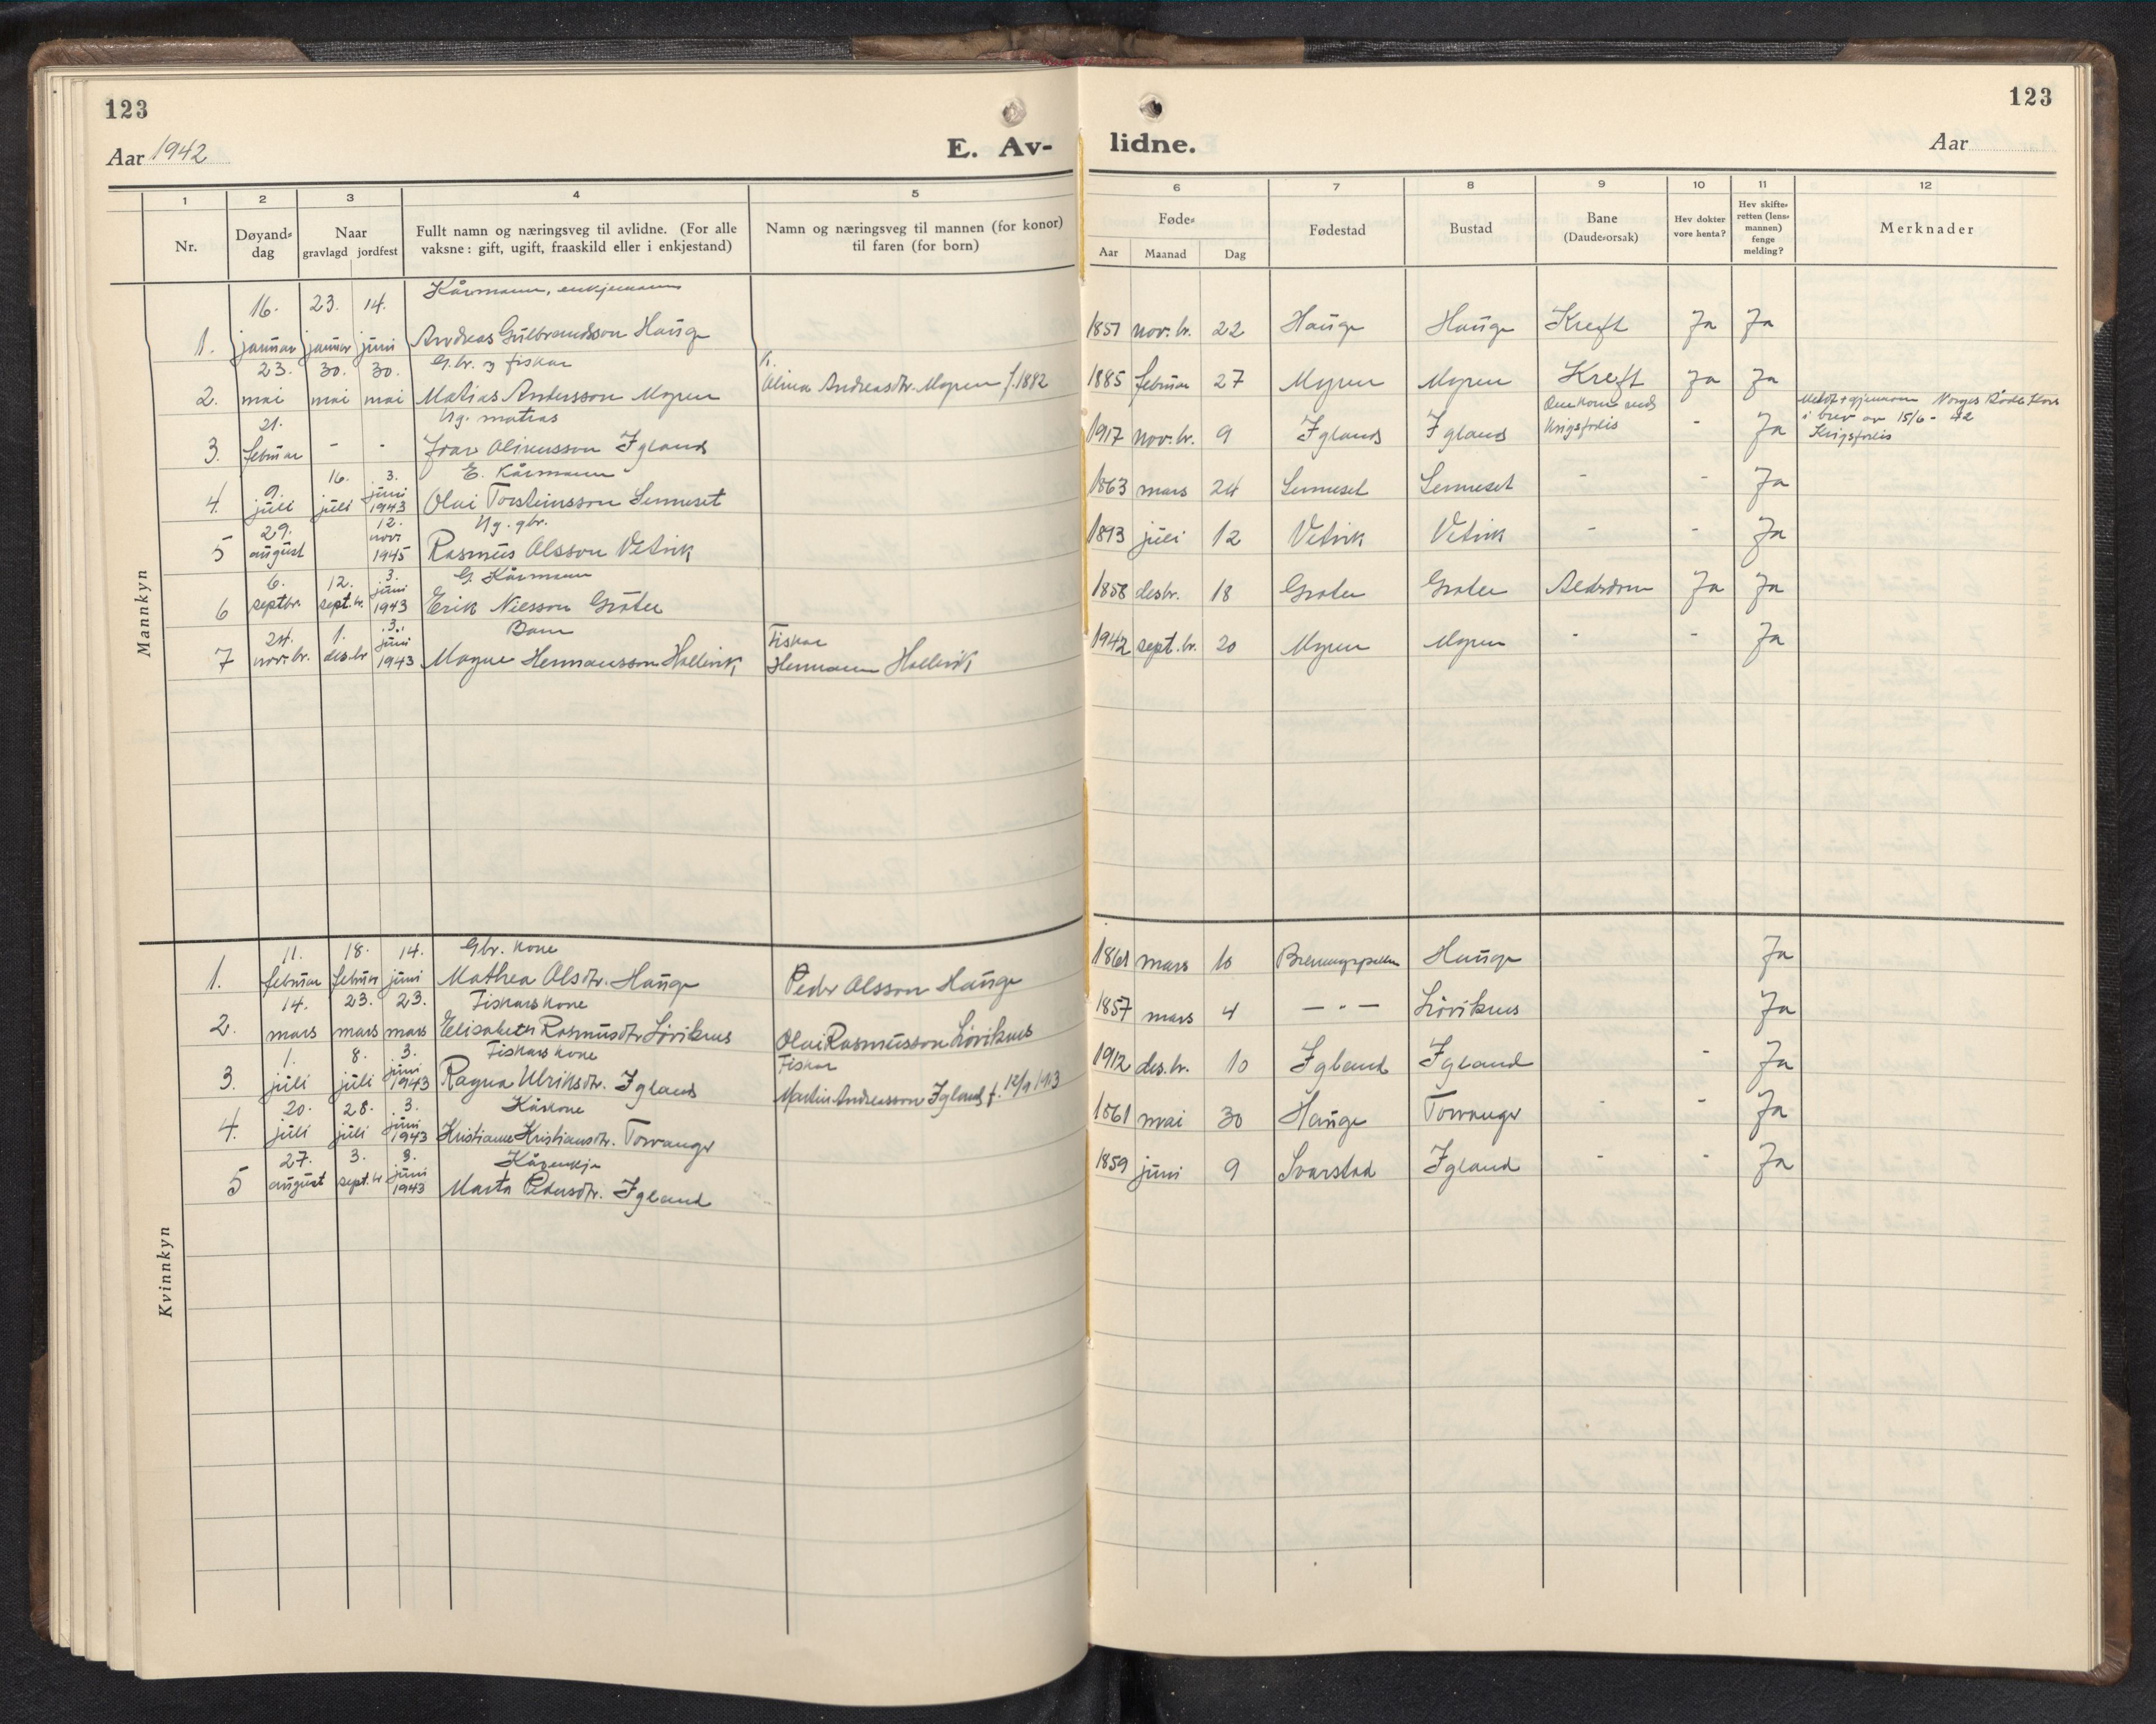 123
Aar 1942
E. Av-
1 2 3 4 5
Nr. Døyand= dag Naar gravlagd jordfest Fullt namn og næringsveg til avlidne. (For alle vaksne: gift, ugift, fraaskild eller i enkjestand) Namn og næringsveg til mannen (for konor) til faren (for born)
Mannkyn
16. 23. 14. Kårmann, enkjemann
1. januar januar juni Andreas Gulbrandsson Hauge
23. 30. 30. G.br. og fiskar K.
2. mai mai mai Matias Andersson Myren Olina Andreasdtr. Myren f. 1882
21. Ug. matros
3. februar - - Joar Olinusson Igland
9. 16. 3. E. Kårmann
4. juli juli juni 1943 Olai Torsteinsson Lenneset
29. 12. Ug. gbr.
5 august novr 1945 Rasmus Olsson Vetvik
6. 12. 3. G. Kårmann
6 septbr. sept.br. juni 1943 Erik Nilsson Grøten
24. 1. 3. Barn Fiskar
7 nov.br. des.br juni 1943 Magne Hermansson Hallevik Hermann Hallevik
Kvinnkyn
11. 18. 14. Gbr. kone
1. februar februar juni Mathea Olsdtr. Hauge Peder Olsson Hauge
14. 23. 23. Fiskars kone
2. mars mars mars Elisabeth Rasmusdtr Løviknes Olai Rasmusson Løviknes
1. 8. 3. Fiskars kone Fiskar
3. juli juli juni 1943 Ragna Ulriksdtr. Igland Martin Andreasson Igland f. 12/9 1913
20. 28. 3. Kårkone
4. juli juli juni 1943 Kristianne Kristiansdtr. Torvanger
27. 3. 3. Kårenkje
5 august sept.br juni 1943 Marta Pedersdtr. Igland
123
lidne.
Aar
6 7 8 9 10 11 12
Føde= Aar Maanad Dag Fødestad Bustad Bane (Daude=orsak) Hev dokter vore henta? Hev skifte= retten (lens= mannen) fenge melding? Merknader
1857 nov.br. 22 Hauge Hauge Kreft Ja Ja
1885 februar 27 Myren Myren Kreft Ja Ja
1917 nov.br. 9 Igland Igland Omkom ved krigsforlis - Ja Meldt gjennom Norges Røde Kors
i brev av 15/6 - 42
Krigsforlis
1863 mars 24 Lenneset Lenneset - - Ja
1893 juli 12 Vetvik Vetvik - - Ja
1858 desbr. 18 Grøten Grøten Alderdom Ja Ja
1942 sept.br. 20 Myren Myren - - Ja
1861 mars 10 Hauge Ja
1857 mars 4 — " — Løviknes Ja
1912 des.br. 10 Igland Igland - Ja
1861 mai 30 Hauge Torvanger - - Ja
1859 juni 9 Svarstad Igland - - Ja